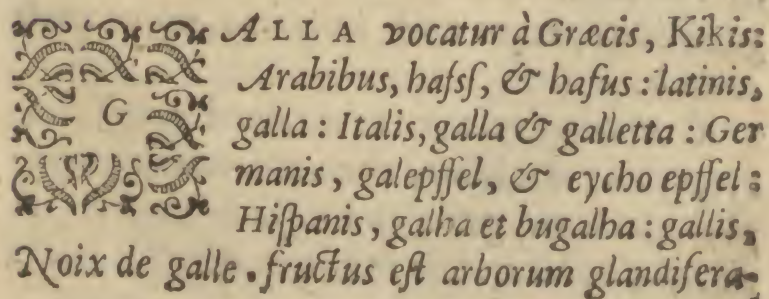 GALLA vocatur à Græcis, Kikis:
Arabibus, haſsſ, & hafus : latinis,
galla : Italis, galla & galletta : Ger
manis, galepffel, & eycho epffel :
Hiſpanis, galha et bugalha : gallis,
Noix de galle . fructus eſt arborum glandifera-